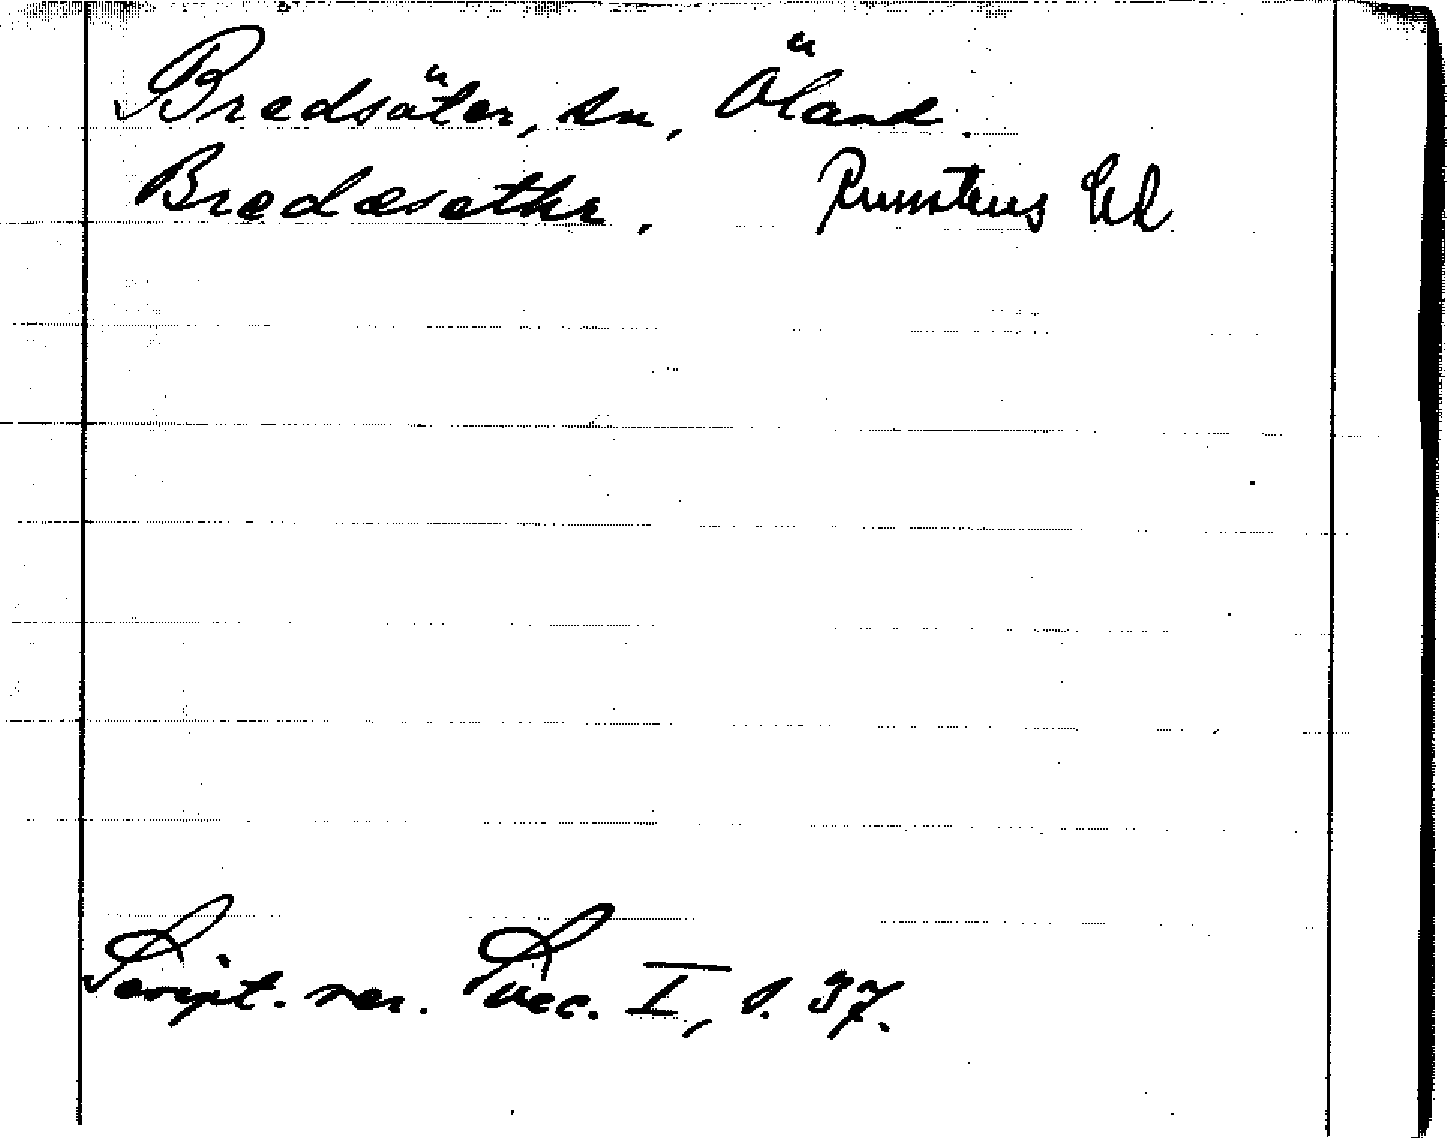 Bredsäter, sn, Öland.
Bredæsæthr. Runstens hd
Script. rer. Svec. I, s. 37.